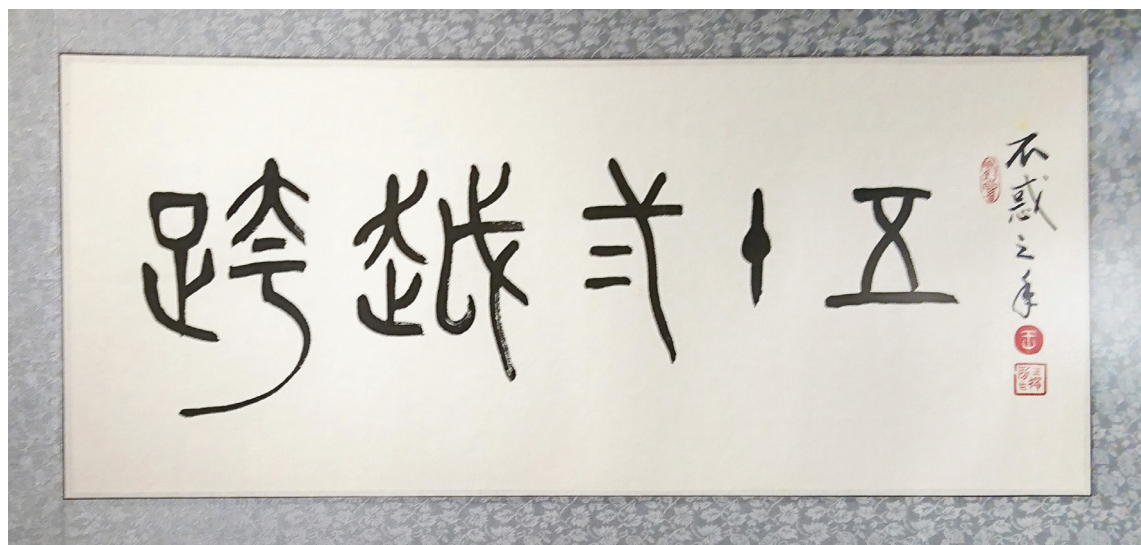 跨越弍十五
不惑之年